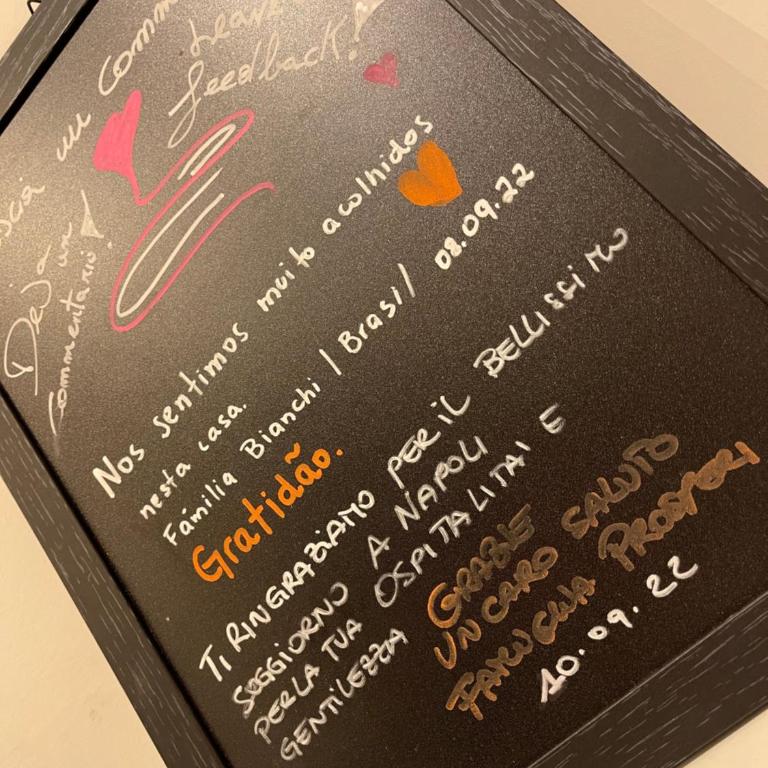 un Comm
Leave
feedback!
Deja
un
commentario!
Nos sentimos muito acolhidos
nesta casa.
Família Bianchi / Brasil 08.09.22
Gratidão.
TI RINGRAZIAMO PER IL BELLISSIMO
SOGGIORNO A NAPOLI
PER LA TUA OSPITALITAI E
GENTILEZZA GRAZIE
UN CARO SALUTO
FAMIGLIA PROSPERI
10.09.22